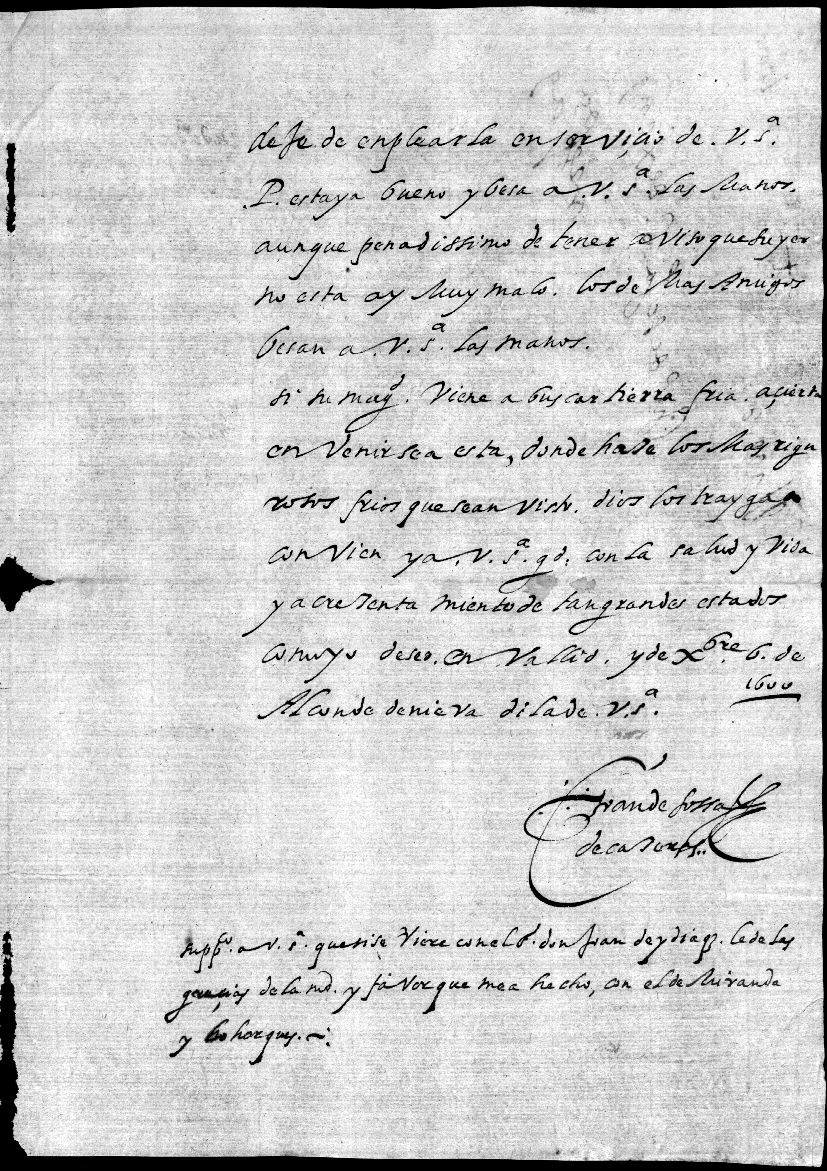 deje de enplearla en serviçio de .V. sª.
.P. esta ya bueno y besa a V. sª. las Manos.
aunque penadissimo de tener aviso que su yer
no esta ay Muy malo. los de Mas Amigos
besan a .V. sª. las manos.
si su magᵈ. Viene a buscar tierra fria. açierta
en Venirse a esta, donde haze los Mas rigu
rosos frios que se an visto. dios los trayga
con vien y a .V. sª. gd. con la salud y Vida
y acresenta miento de tan grandes estados
como yo deseo. en Vallid. y de Xbre. 6. de
1600
Al conde de nieva di la de .V. sª.
fran de sossa
de ca
suppᶜᵒ. a V. sª. que si se Viere con el don Joan de ydiaqz. le de las
graçias de la md. y favor que me a hecho, con el de Miranda
y bohorques.